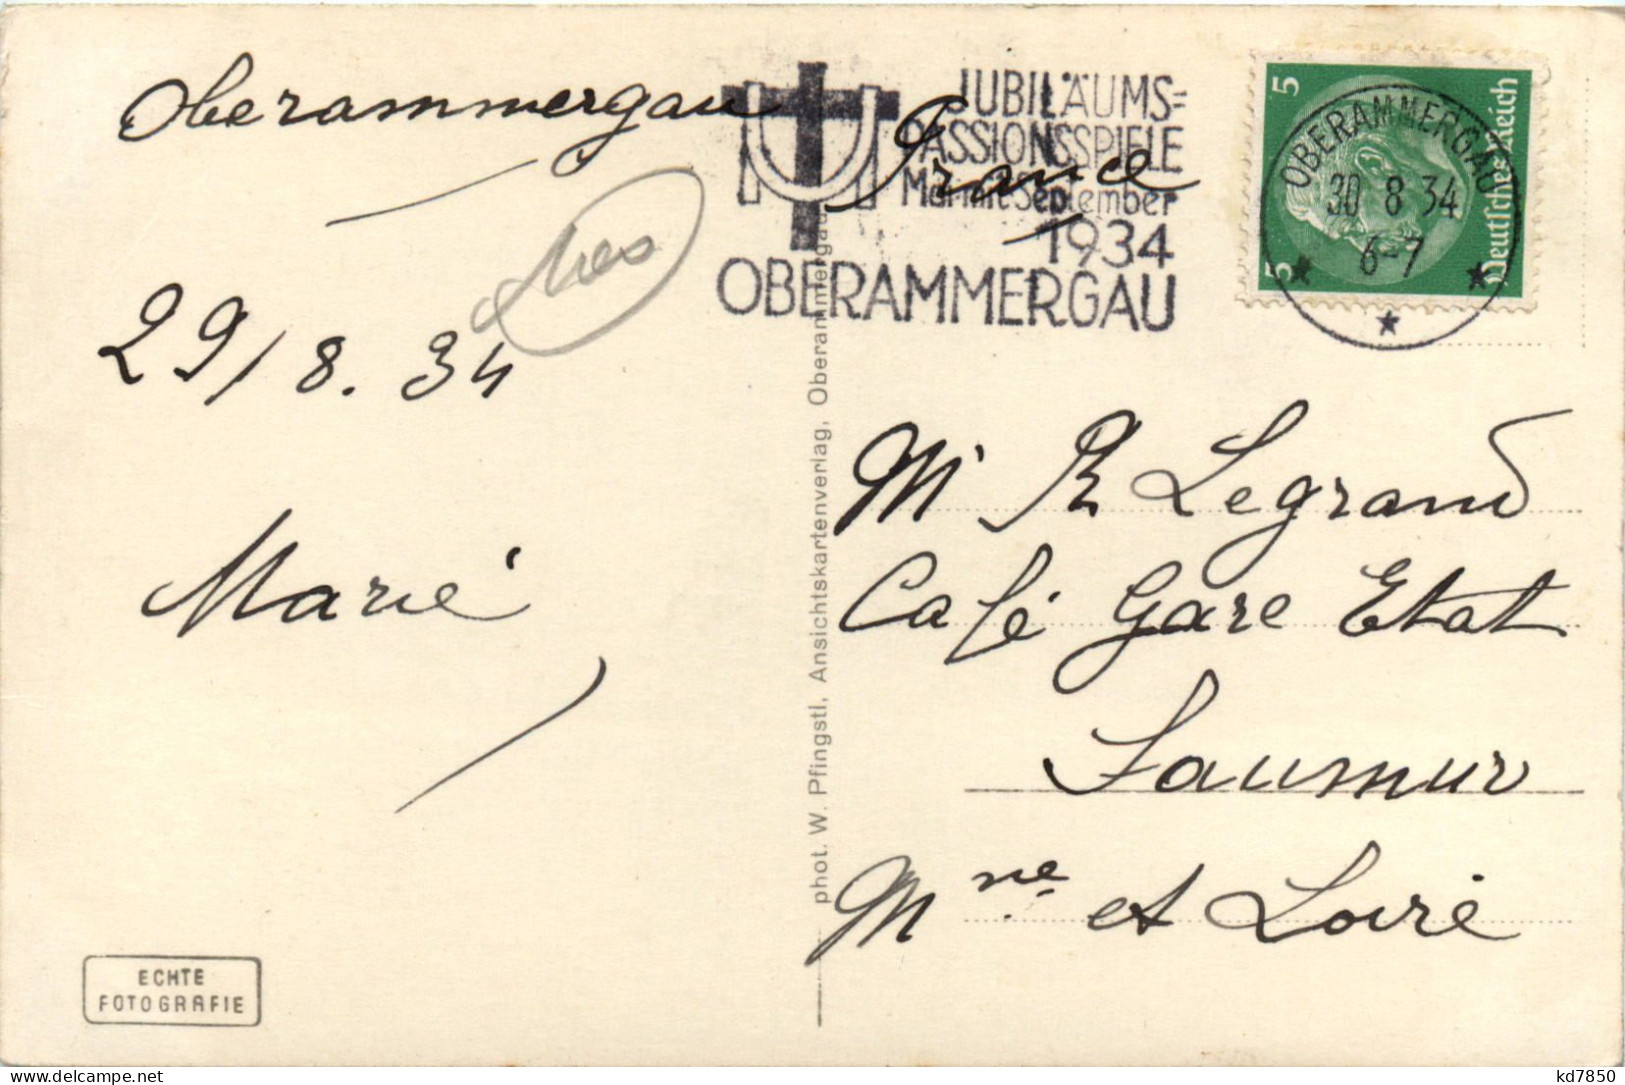 Oberammergau
29/8. 34
Marie
ECHTE
FOTOGRAFIE
phot. W. Pfingstl, Ansichtskartenverlag, Oberammergau
JUBILÄUMS=
PASSIONSSPIELE
Mai mit September
1934
OBERAMMERGAU
France
5
5
Deutsches Reich
OBERAMMERGAU
30 8 34
6-7
Mr R Legrand
Café Gare Etat
Saumur
Mne et Loire
kd7850